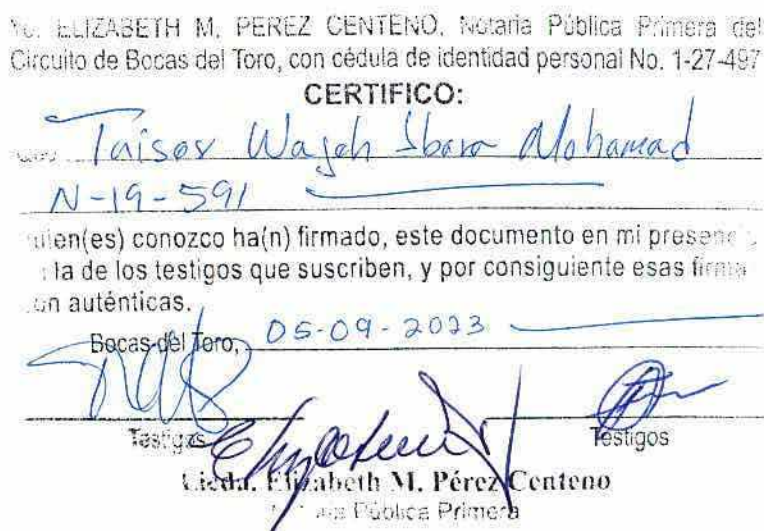 Yo, ELIZABETH M. PEREZ CENTENO, Notaria Pública Primera del
Circuito de Bocas del Toro, con cédula de identidad personal No. 1-27-497
CERTIFICO:
Taisos Wajeh Ibara Mohamad
N-19-591
quien(es) conozco ha(n) firmado, este documento en mi
la de los testigos que suscriben, y por consiguiente esas firma
son auténticas.
Bocas del Toro, 05-09-2023
Testigos Testigos
Licda. Elizabeth M. Pérez Centeno
Pública Primera